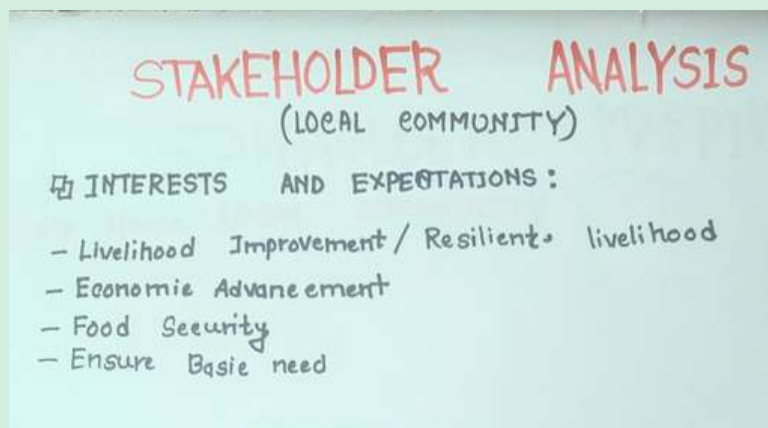 STAKEHOLDER ANALYSIS
(LOCAL COMMUNITY)
INTERESTS AND EXPECTATIONS:
- Livelihood Improvement / Resilient. livelihood
- Economic Advancement
- Food Security
- Ensure Basic need